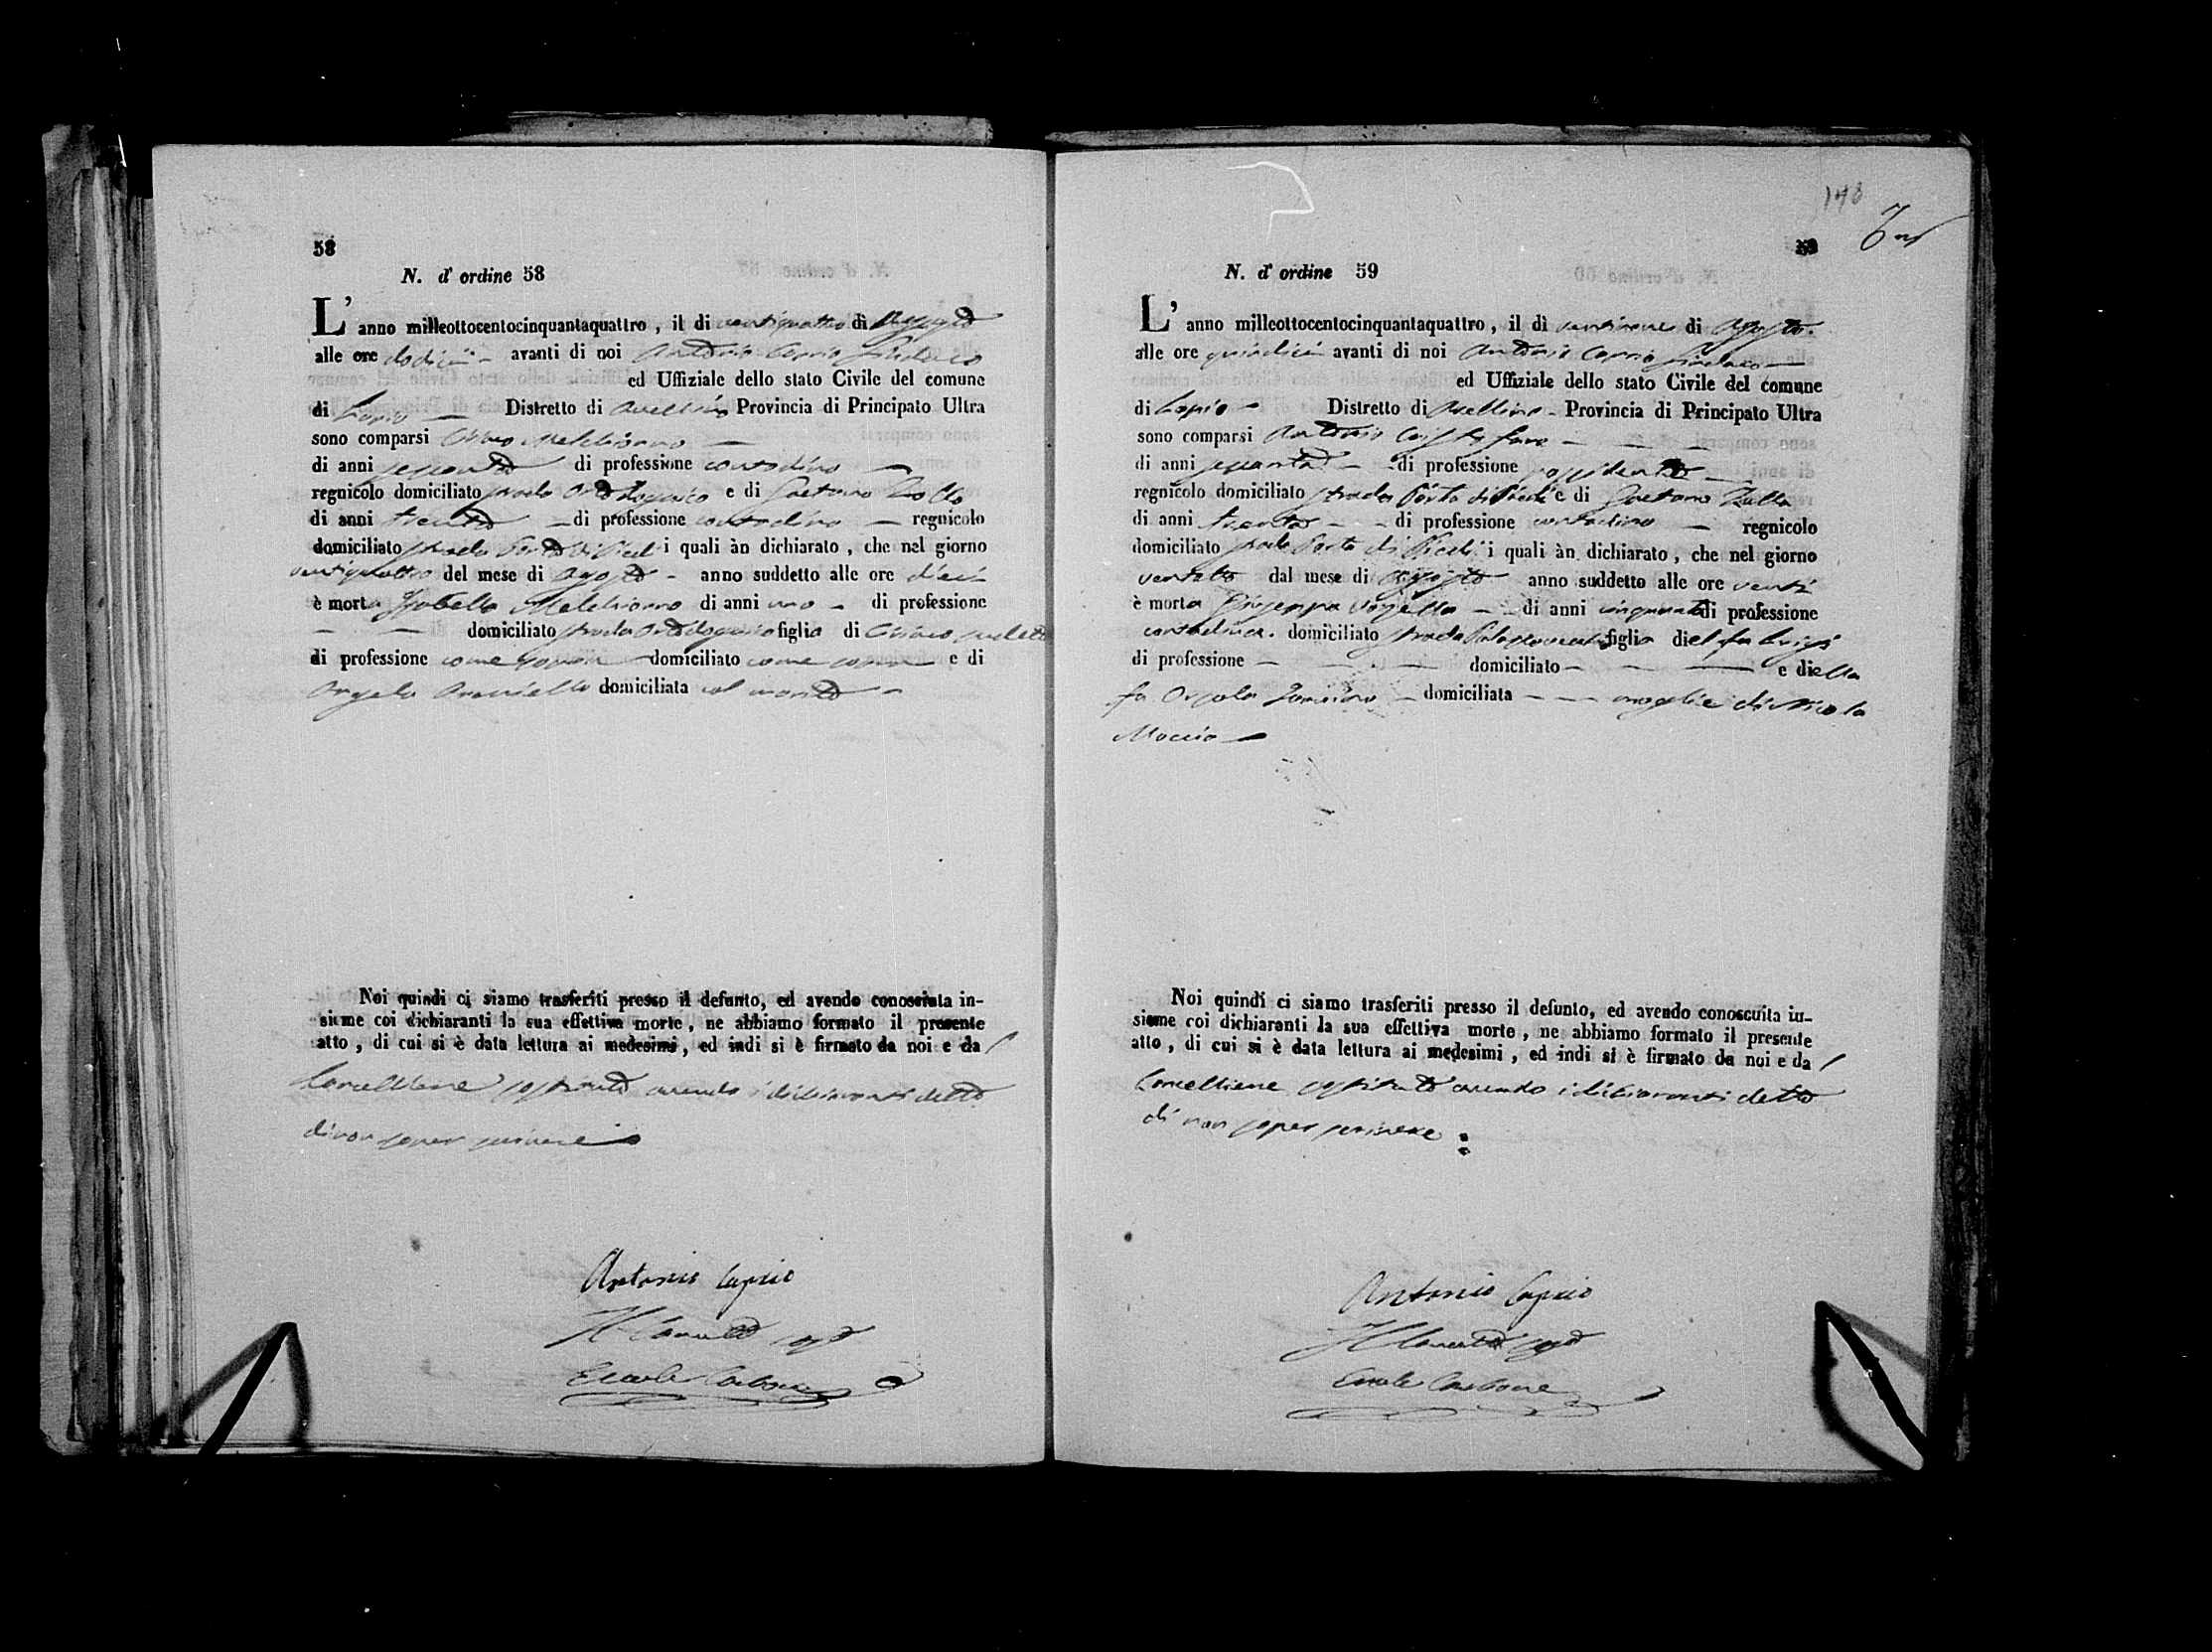 58
N. d' ordine 58
L' anno milleottocentocinquantaquattro, il di ventiquattro di Agosto
alle ore dodici - avanti di noi Antonio Caprio Sindaco
ed Uffiziale dello stato Civile del comune
di Lapio - Distretto di Avellino Provincia di Principato Ultra
sono comparsi Melchionno
di anni sessanta di professione contadino
regnicolo domiciliato strada e di Gaetano
di anni trenta - di professione contadino - regnicolo
domiciliato strada Porta di i quali àn dichiarato, che nel giorno
ventiquattro del mese di Agosto - anno suddetto alle ore dieci
è morta Isabella Melchionno di anni uno - di professione
- - domiciliato strada figlia di
di professione come sopra domiciliato come sopra e di
Angela domiciliata col marito -
Noi quindi ci siamo trasferiti presso il defunto, ed avendo conosciuta in-
sieme coi dichiaranti la sua effettiva morte, ne abbiamo formato il presente
atto, di cui si è data lettura ai medesimi, ed indi si è firmato da noi e da
Cancelliere sostituto avendo i dichiaranti detto
di non saper scrivere
Antonio Caprio
Ercole Carbone
148
59
N. d' ordine 59
L' anno milleottocentocinquantaquattro, il dì ventinove di Agosto
alle ore quindici avanti di noi Antonio Caprio Sindaco
ed Uffiziale dello stato Civile del comune
di Lapio - Distretto di Avellino - Provincia di Principato Ultra
sono comparsi Antonio Cristofaro - -
di anni sessanta - di professione possidente
regnicolo domiciliato strada Porta di e di Gaetano
di anni trenta - - di professione contadino - regnicolo
domiciliato strada Porta di i quali àn dichiarato, che nel giorno
ventotto dal mese di Agosto anno suddetto alle ore venti
è morta Giuseppa - di anni cinquanta di professione
contadina. domiciliato strada figlia del fu Luigi
di professione - - - domiciliato - - - e della
fu Orsola - domiciliata - - moglie di Nicola
Moccia
Noi quindi ci siamo trasferiti presso il defunto, ed avendo conoscuita in-
sieme coi dichiaranti la sua effettiva morte, ne abbiamo formato il presente
atto, di cui si è data lettura ai medesimi, ed indi si è firmato da noi e da
Cancelliere sostituto avendo i dichiaranti detto
di non saper scrivere
Antonio Caprio
Ercole Carbone